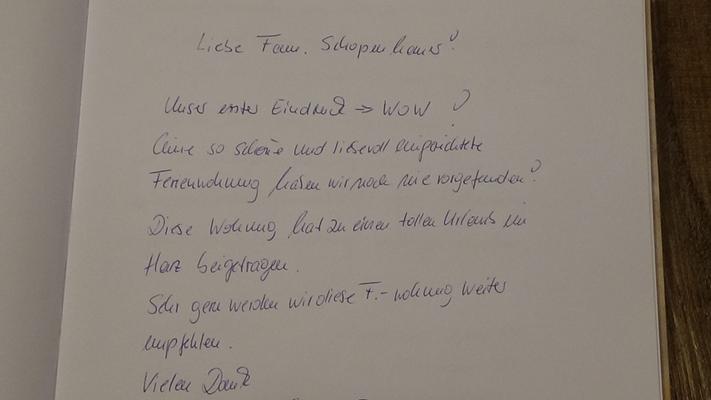 Liebe Fam. Schopenhauer!
Unser erster Eindruck => WOW !
Eine so schöne und liebevoll eingerichtete
Ferienwohnung haben wir noch nie vorgefunden!
Diese Wohnung hat zu einen tollen Urlaub im
Harz beigetragen.
Sehr gern werden wir diese F.-wohnung weiter
empfehlen.
Vielen Dank